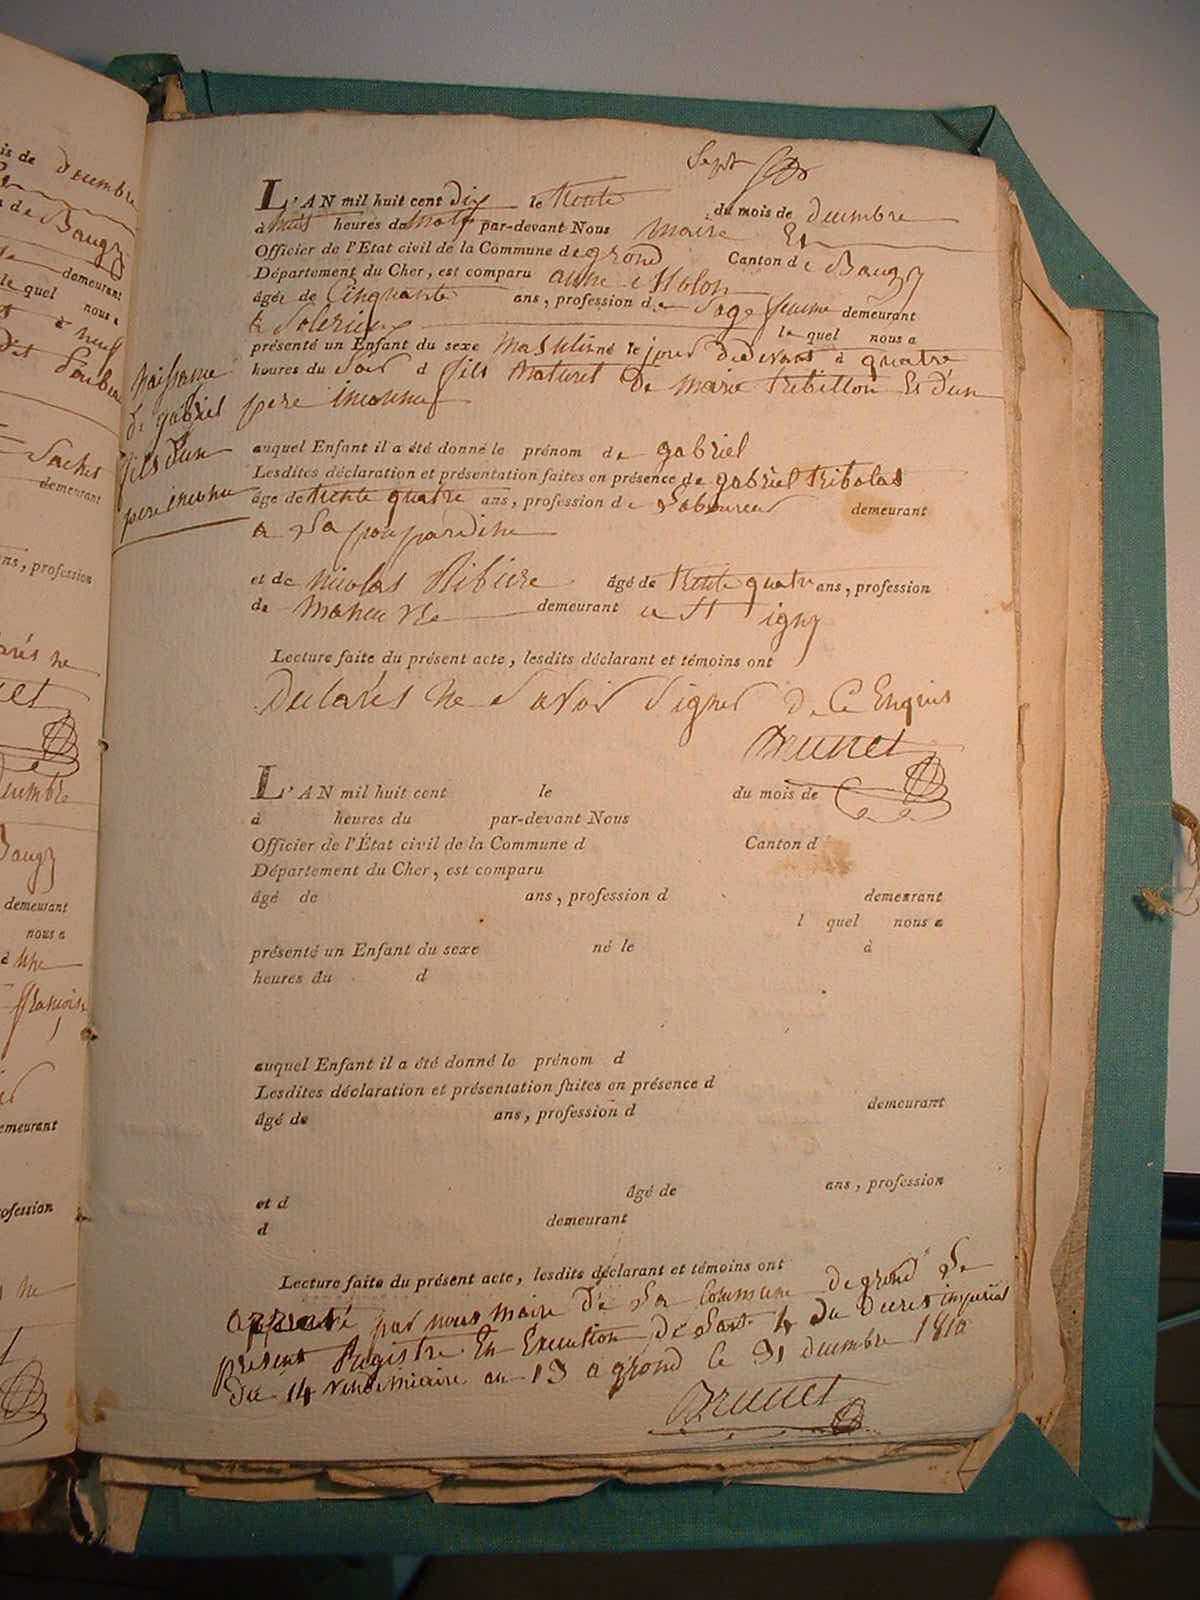 is de decembre
de Baugy
demeurant
le quel nous a
Sept
L'AN mil huit cent dix le trente du mois de decembre
à huit heures du matin par-devant Nous maire Et
Officier de l'Etat civil de la Commune de grond Canton de Baugy
Département du Cher, est comparu anne
âgée de Cinquante ans, profession de Sage femme demeurant
a le quel nous a
présenté un Enfant du sexe masculin né le jour dedevant à quatre
heures du Soir d fils naturel de marie trebillon Et d'un
pere inconnu
Naissance
de gabriel
fils d'un
pere inconnu
auquel Enfant il a été donné le prénom de gabriel
Lesdites déclaration et présentation faites en présence de gabriel tribolas
âgé de trente quatre ans, profession de Laboureur demeurant
a La poupardine
et de nicolas Ribiere âgé de trente quatre ans, profession
de maneuvre demeurant a St igny
Lecture faite du présent acte, lesdits déclarant et témoins ont
Declarés ne Savoir Signer de Ce Enquis
Brunet
L'AN mil huit cent le du mois de
à heures du par-devant Nous
Officier de l'État civil de la Commune d Canton d
Département du Cher, est comparu
âgé de ans, profession d demeurant
l quel nous a
présenté un Enfant du sexe né le à
heures du d
auquel Enfant il a été donné le prénom d
Lesdites déclaration et présentation faites en présence d
âgé de ans, profession d demeurant
et d âgé de ans, profession
d demeurant
Lecture faite du présent acte, lesdits déclarant et témoins ont
par nous maire de La Commune de grond Le
present Registre En Execution de Lart 4 du Decret imperial
Du 14 vendemiaire an 13 a grond le 31 decembre 1810
Brunet